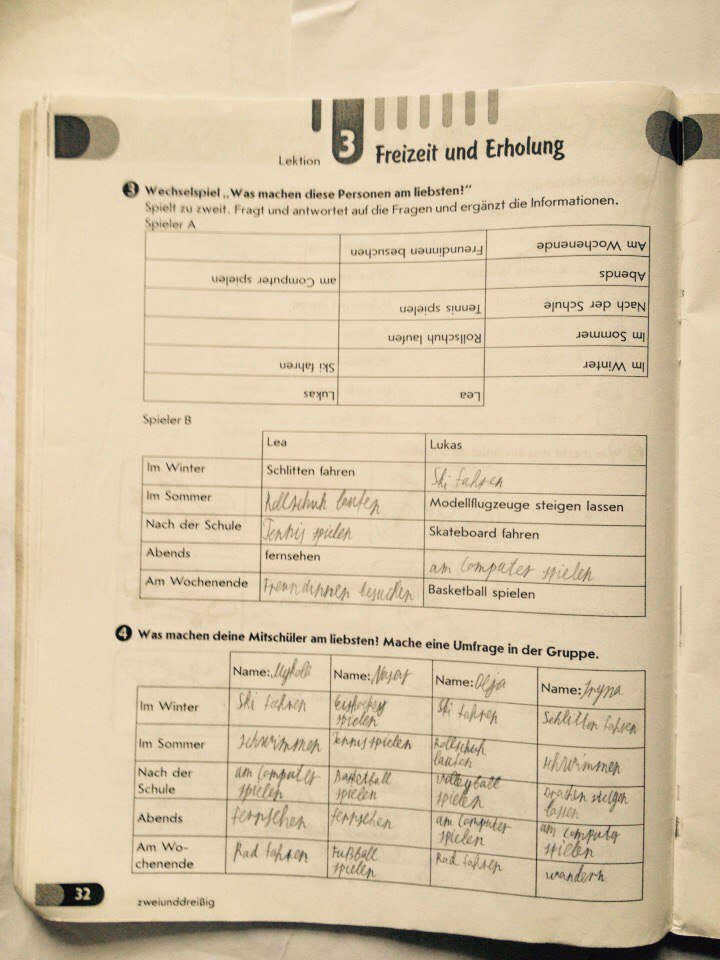 Lektion 3 Freizeit und Erholung
3 Wechselspiel „Was machen diese Personen am liebsten!“
Spielt zu zweit. Fragt und antwortet auf die Fragen und ergänzt die Informationen.
Spieler A
Freundinnen besuchen Am Wochenende
am Computer spielen Abends
Tennis spielen Nach der Schule
Rollschuh laufen Im Sommer
Ski fahren Im Winter
Lukas Lea
Spieler B
Lea Lukas
Im Winter Schlitten fahren Ski fahren
Im Sommer Rollschuh laufen Modellflugzeuge steigen lassen
Nach der Schule Tennis spielen Skateboard fahren
Abends fernsehen am Computer spielen
Am Wochenende Freundinnen besuchen Basketball spielen
4 Was machen deine Mitschüler am liebsten! Mache eine Umfrage in der Gruppe.
Name: Mykola Name: Nasar Name: Olja Name: Iryna
Im Winter Ski fahren Eishockey spielen Ski fahren Schlitten fahren
Im Sommer schwimmen Tennis spielen Rollschuh laufen schwimmen
Nach der Schule am Computer spielen Basketball spielen Volleyball spielen Drachen steigen lassen
Abends fernsehen fernsehen am Computer spielen am Computer spielen
Am Wo-
chenende Rad fahren Fußball spielen Rad fahren wandern
32
zweiunddreißig